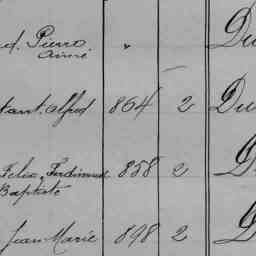 d. Pierre " Du
Aimé
tant. Alfred 864 2 Du
Felix, Ferdinand 858 2 D
Baptiste
Jean Marie 898 2 D